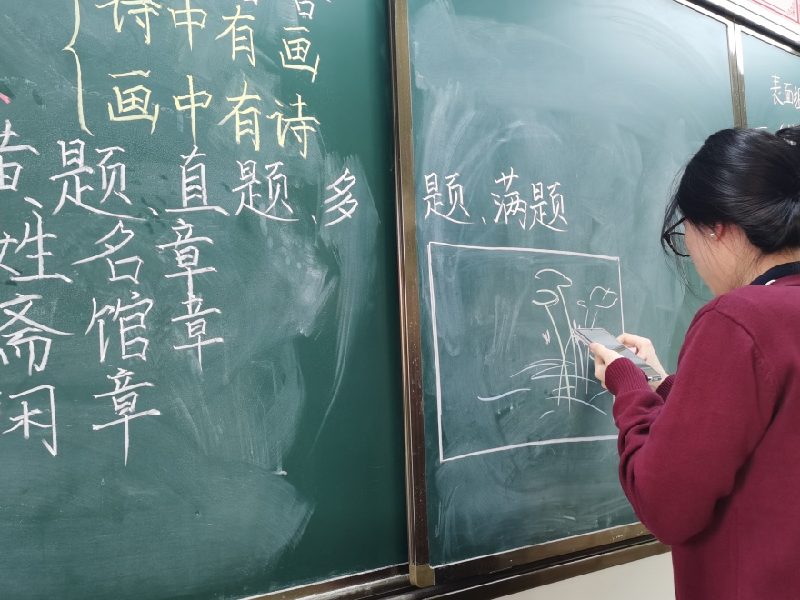 诗中有画
画中有诗
题、直题、多题、满题
姓名章
斋馆章
闲章
表面